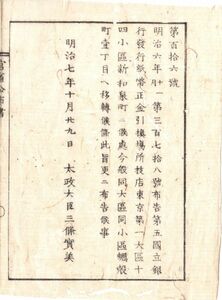 第百十六號
明治六年十一月第三百七十八號布告第五國立銀
行發行紙幣正金引換場所支店東京第一大區十
四小區新和泉町ニ候處今般同大區同小區蠣殻
町壹丁目ヘ移轉候條此旨更ニ布告候事
明治七年十月廿九日 太政大臣三條實美